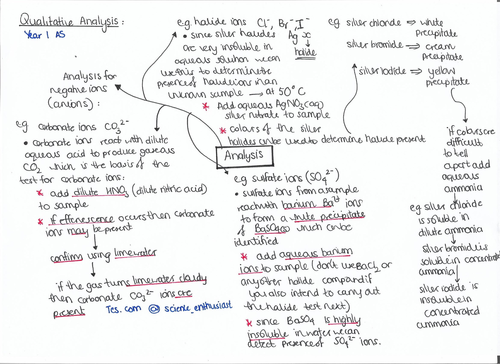 Qualitative Analysis:
Year 1 AS
Analysis for
negative ions
(anions):
eg carbonate ions CO₃²⁻
• carbonate ions react with dilute
aqueous acid to produce gaseous
CO₂ which is the basis of the
test for carbonate ions:
* add dilute HNO₃ (dilute nitric acid)
to sample
* If effervescence occurs then carbonate
ions may be present
confirm using limewater
if the gas turns limewater cloudy
then carbonate CO₃²⁻ ions are
present
Tes.com @ science_enthusiast
eg halide ions Cl⁻, Br⁻, I⁻
• since silver halides Ag x
are very insoluble in
halide
aqueous solution we can
use this to determine the
presence of halide ions in an
unknown sample → at 50°C
* Add aqueous AgNO₃(aq)
silver nitrate to sample
* colours of the silver
halides can be used to determine halide present
Analysis
eg sulfate ions (SO₄²⁻)
• sulfate ions from a sample
react with barium Ba²⁺ ions
to form a white precipitate
of BaSO₄(s) which can be
identified
* add aqueous barium
ions to sample (don't use BaCl₂ or
any other halide compound if
you also intend to carry out
the halide test next)
* since BaSO₄ is highly
insoluble in water we can
detect presence of SO₄²⁻ ions.
eg silver chloride ⇒ white
precipitate
silver bromide ⇒ cream
precipitate
silver iodide ⇒ yellow
precipitate
if colours are
difficult
to tell
apart add
aqueous
ammonia
eg silver chloride
is soluble in
dilute ammonia
silver bromide is
soluble in concentrated
ammonia
silver iodide is
insoluble in
concentrated
ammonia